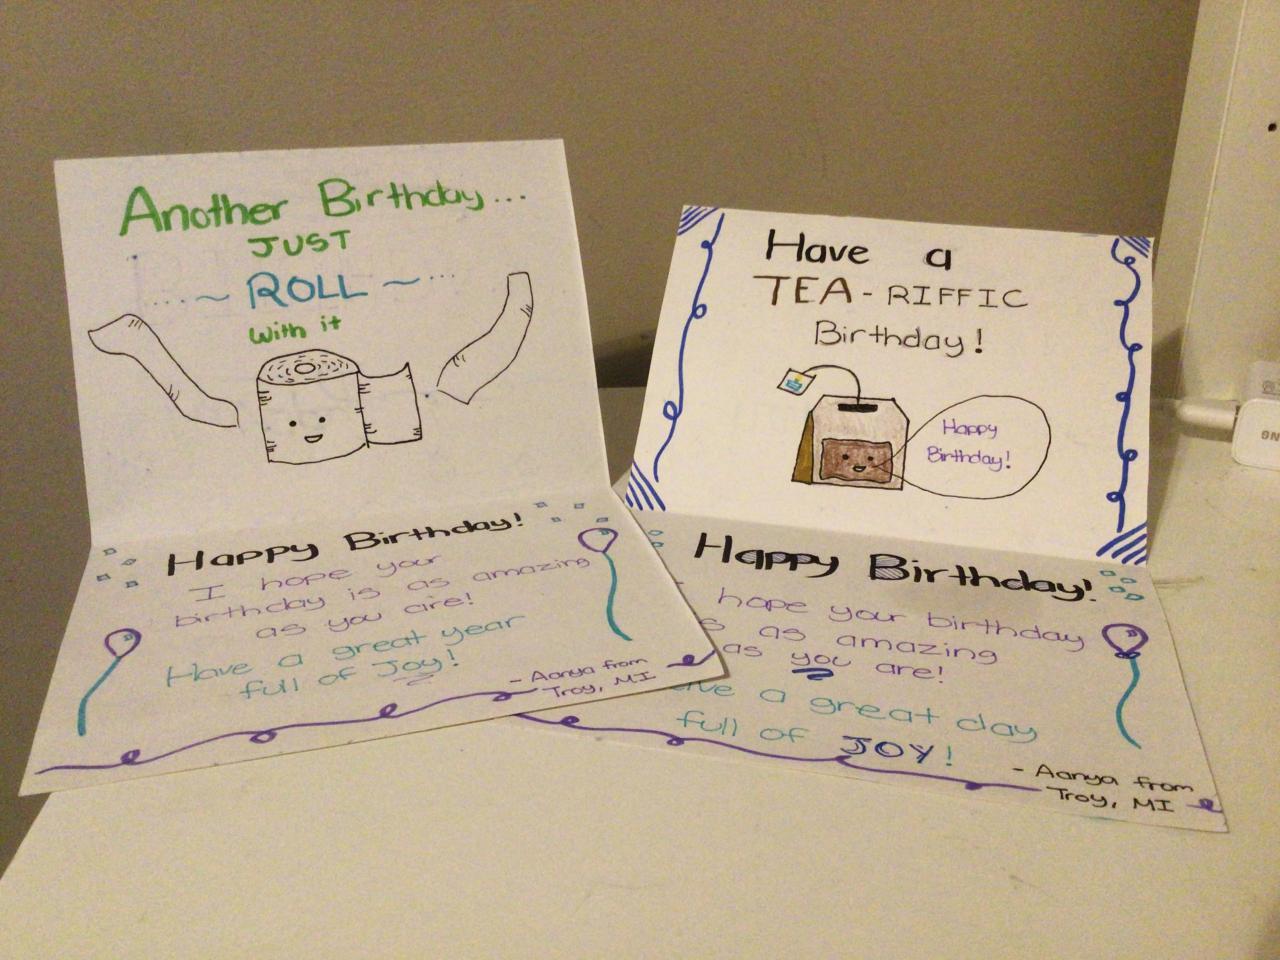 Another Birthday...
JUST
...~ ROLL ~...
with it
Happy Birthday!
I hope your
birthday is as amazing
as you are!
Have a great year
full of Joy!
- Aanya from
Troy, MI
Have a
TEA-RIFFIC
Birthday!
Happy
Birthday!
Happy Birthday!
hope your birthday
as amazing
as you are!
a great day
full of JOY!
- Aanya from
Troy, MI